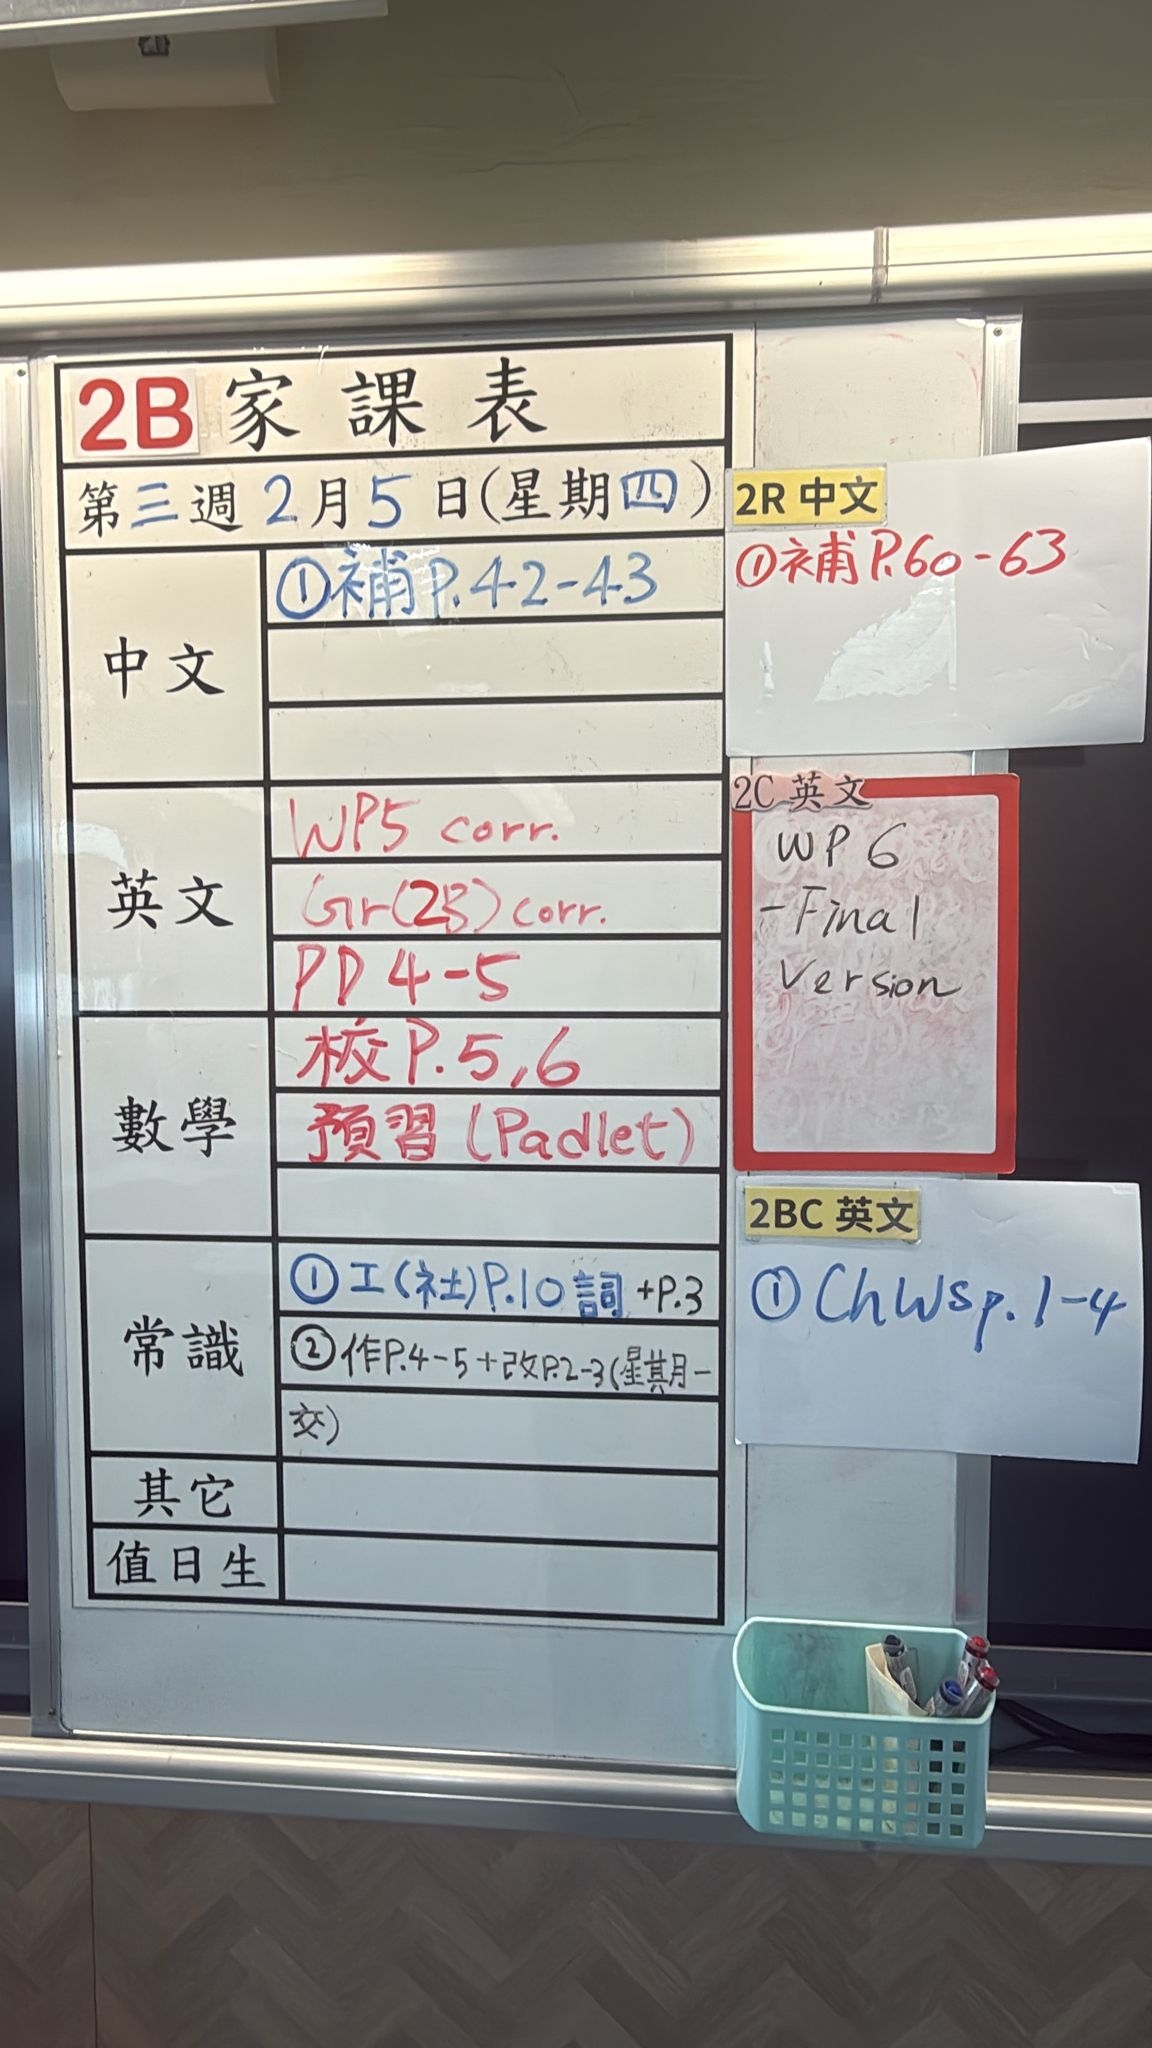 2B 家課表
第三週2月5日(星期四)
中文
①補P.42-43
英文
WP5 corr.
Gr(2B) corr.
PD 4-5
數學
校P.5,6
預習 (Padlet)
常識
①工(社)P.10詞 +P.3
②作P.4-5+改P.2-3(星期一
交)
其它
值日生
2R 中文
①補P.60-63
2C 英文
WP 6
-Final
Version
2BC 英文
①ChWS p.1-4